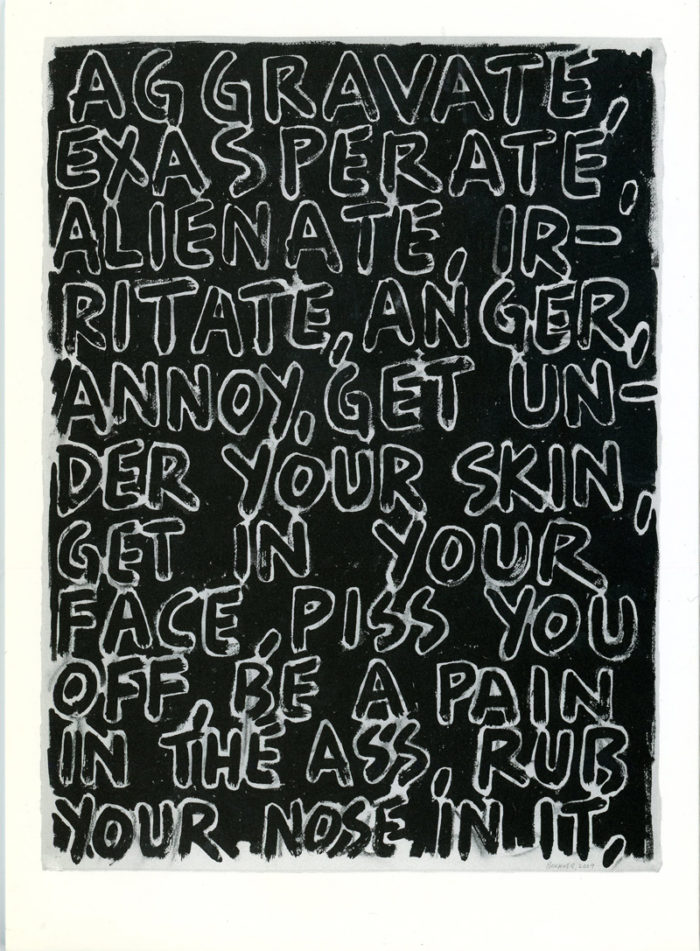 AGGRAVATE,
EXASPERATE,
ALIENATE, IR-
RITATE, ANGER,
ANNOY, GET UN-
DER YOUR SKIN,
GET IN YOUR
FACE, PISS YOU
OFF, BE A PAIN
IN THE ASS, RUB
YOUR NOSE IN IT,